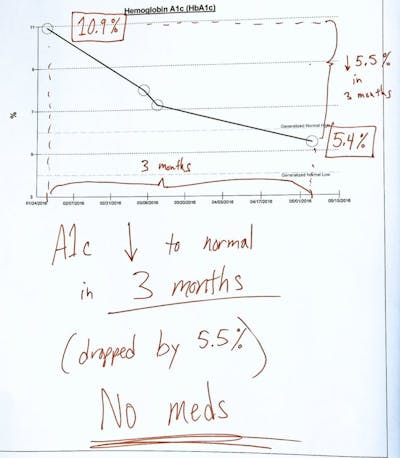 Hemoglobin A1c (HbA1c)
10.9%
11
↓ 5.5%
in
3 months
9
7
%
Generalized Normal High
5.4%
5
3 months
Generalized Normal Low
3
02/07/2016 03/06/2016 04/17/2016 05/01/2016 05/15/2016
A1c ↓ to normal
in 3 months
(dropped by 5.5%)
No meds